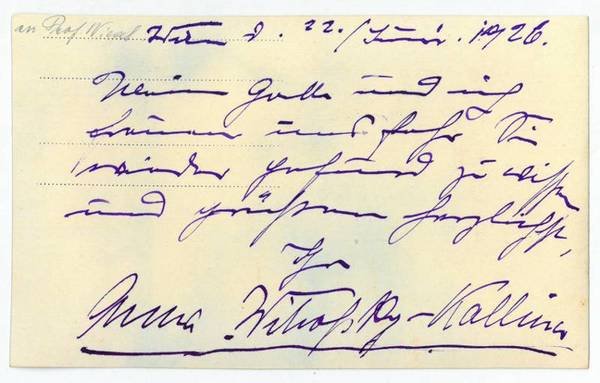 an Prof
Wien d. 22./Juni. 1926.
Mein Gatte und ich
freuen uns sehr Sie
wieder gesund zu wissen
und grüßen herzlichst,
Ihre
Anna